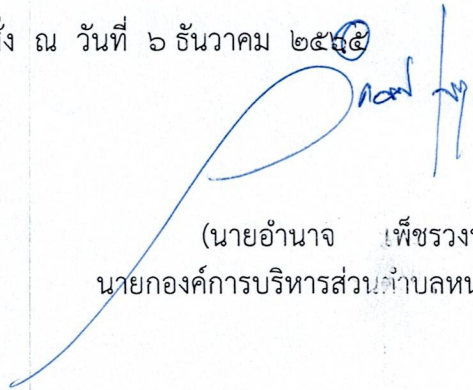 ณ วันที่ ๖ ธันวาคม ๒๕๖๕
(นายอำนาจ เพ็ชรวง
นายกองค์การบริหารส่วนตำบล